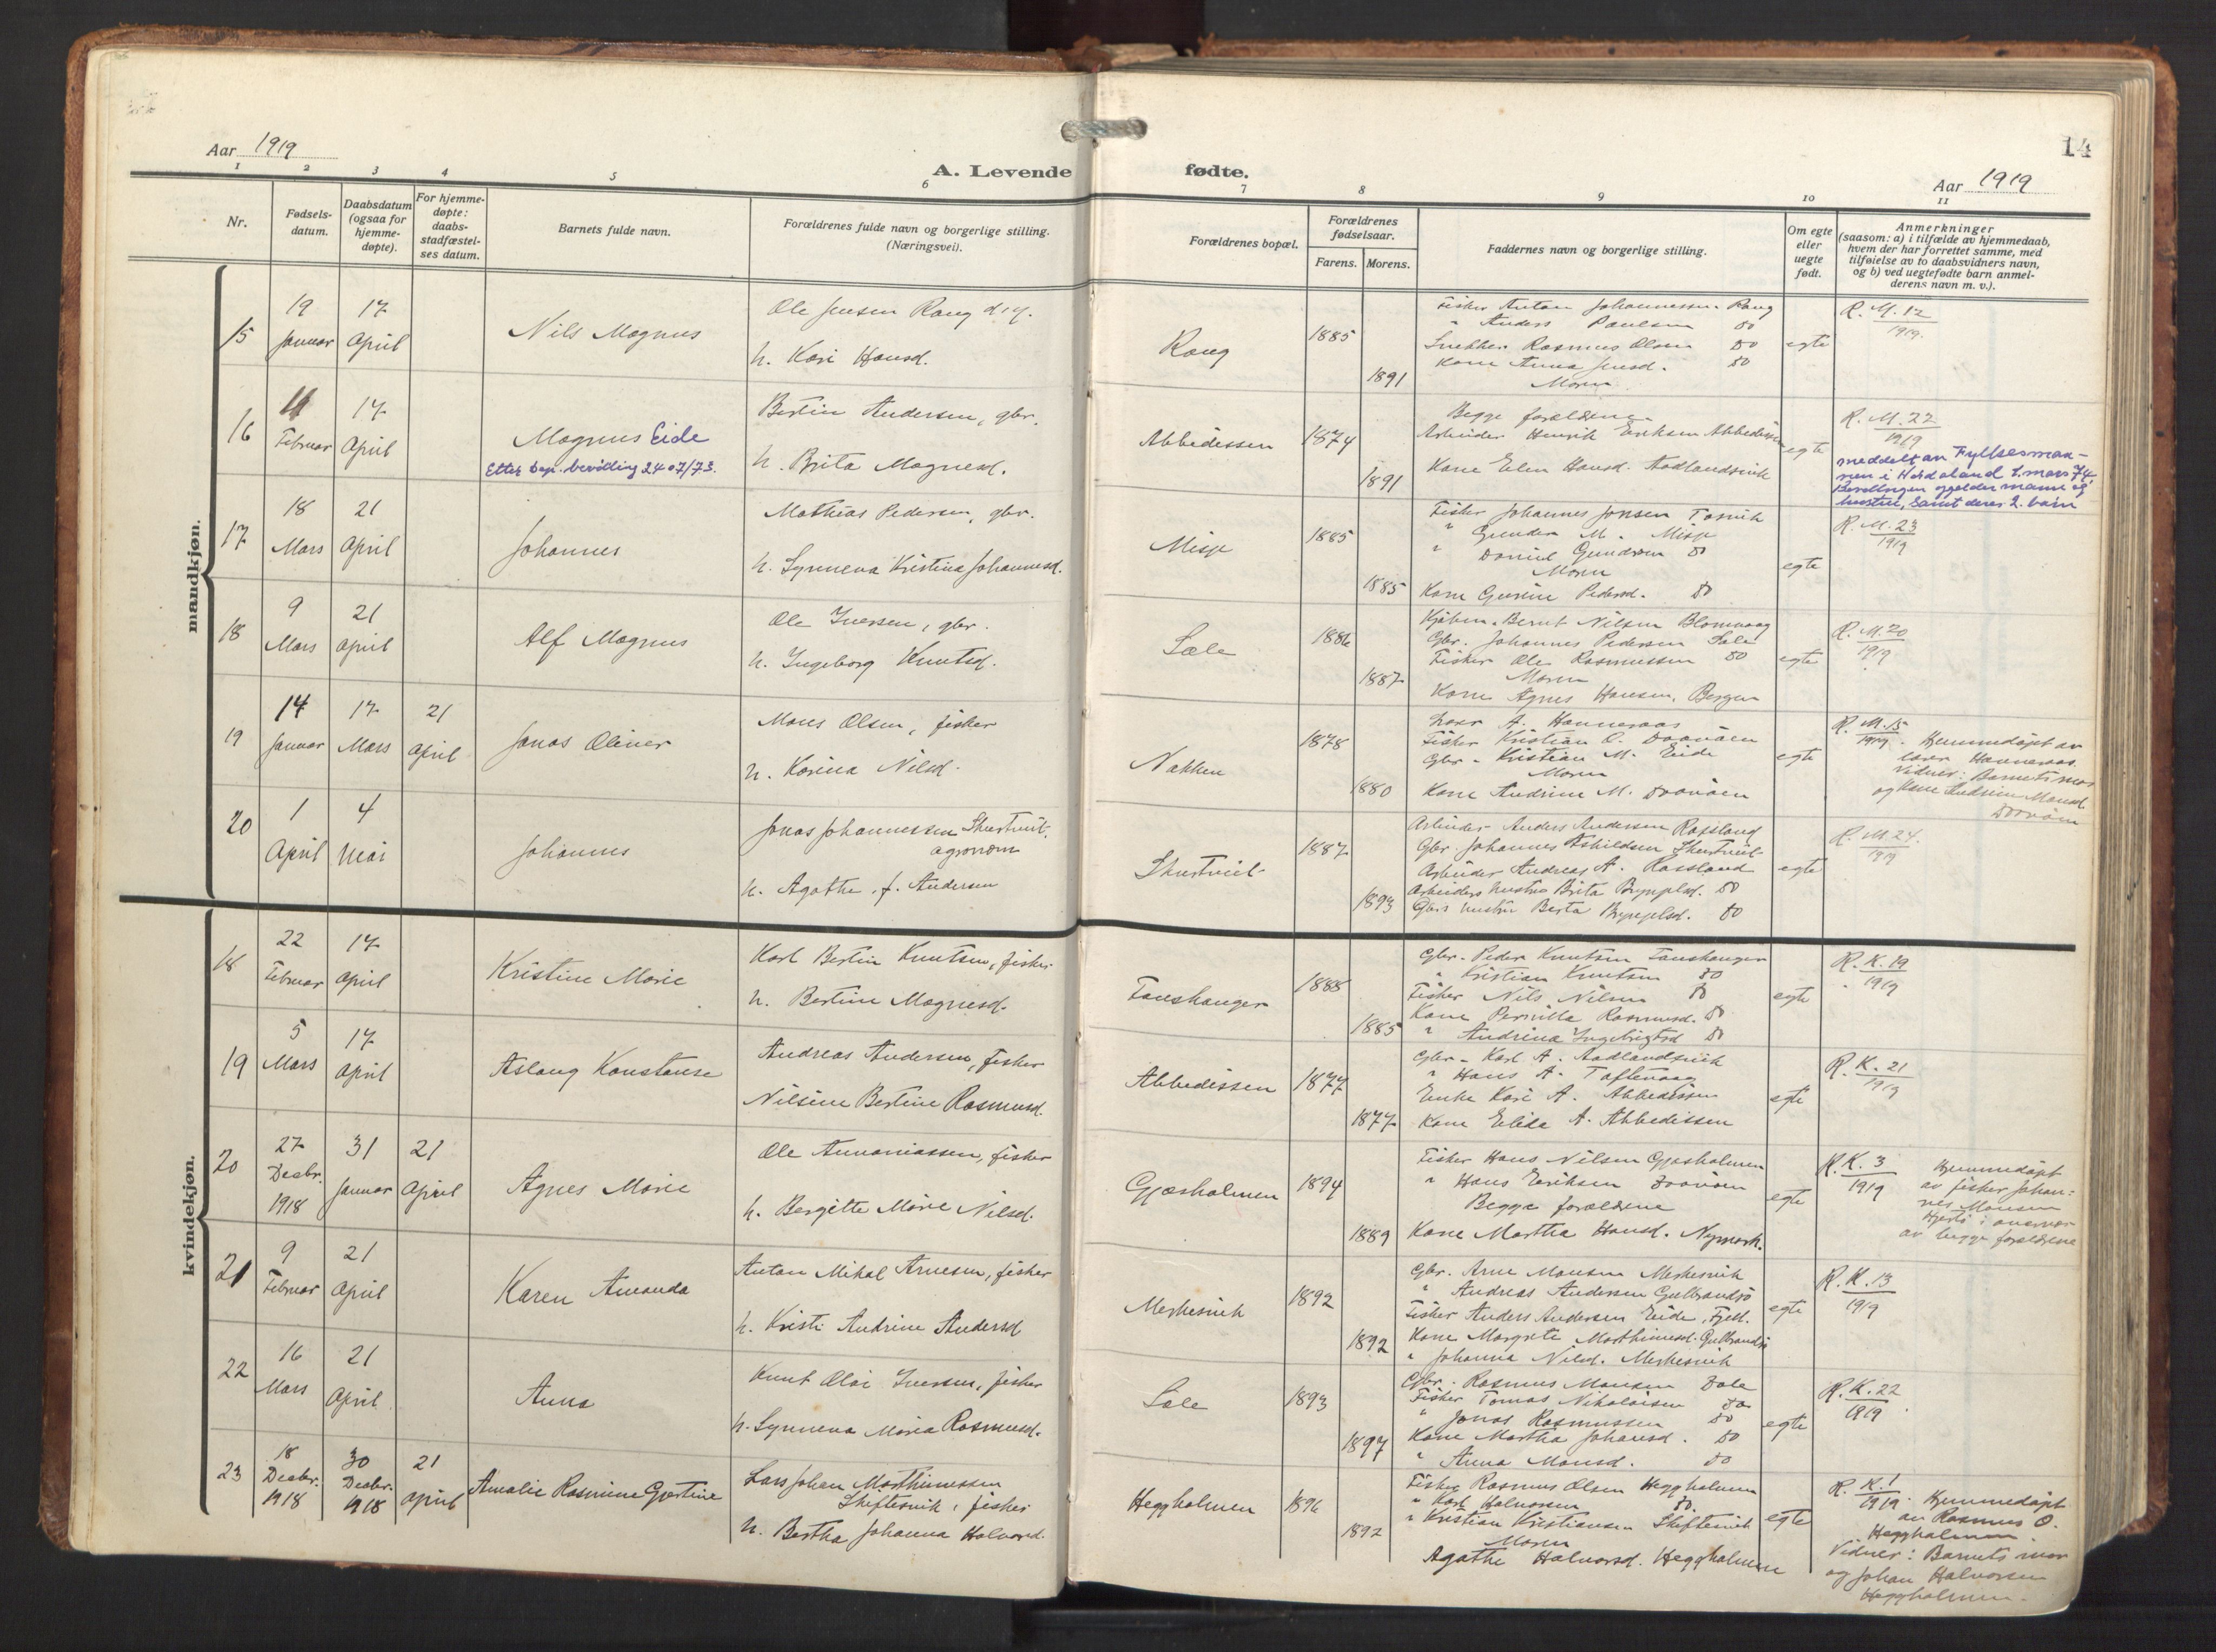 Aar 1919
A. Levende fødte.
14
Aar 1919
1 2 3 4 5 6 7 8 9 10 11
Nr.
Fødsels-
datum.
Daabsdatum
(ogsaa for
hjemme-
døpte).
For hjemme-
døpte:
daabs-
stadfæstel-
ses datum.
Barnets fulde navn.
Forældrenes fulde navn og borgerlige stilling.
(Næringsvei).
Forældrenes bopæl.
Forældrenes
fødselsaar.
Farens. Morens.
Faddernes navn og borgerlige stilling.
Om egte
eller
uegte
født.
Anmerkninger
(saasom: a) i tilfælde av hjemmedaab,
hvem der har forrettet samme, med
tilføielse av to daabsvidners navn,
og b) ved uegtefødte barn anmel-
derens navn m. v.).
mandkjøn.
15
19 Januar
17 April
Nils Magnus
Ole Jensen Rong
h. Kari Hansd.
Rong
1885
1891
Fisker Anton Johannessen Rong
" Anders Paulsen do
Snekker Rasmus Olsen do
Kone Anna Jensd. do
Moren
egte
R. M. 12
1919.
16
11 Februar
17 April
Magnus Eide
Etter dep. bevilling 24 07/73.
Bertin Andersen, gbr.
h. Brita Magnesd.
Abbedissen
1874
1891
Begge forældrene
Arbeider Henrik Eriksen Abbedissen
Kone Elen Hansd. Aadlandsvik
egte
R. M. 22
1919
meddelt av Fylkesman-
nen i Hordaland 1. mars 74
Bevillingen gjelder mann og
hustru, samt deres 2. barn
17
18 Mars
21 April
Johannes
Mathias Pedersen, gbr.
h. Synneva Kristina Johannesd.
Misje
1885
1885
Fisker Johannes Jonsen Tosvik
" Gunder M. Misje
" Daniel Gundersen do
Moren
Kone Gurine Pedersd. do
egte
R. M. 23
1919
18
9 Mars
21 April
Alf Magnus
Ole Iversen, gbr.
h. Ingeborg Knutsd.
Sæle
1886
1887
Kjøbm. Bernt Nilsen Blomvaag
Gbr. Johannes Pedersen Sæle
Fisker Ole Rasmussen do
Moren
Kone Agnes Hansen, Bergen
egte
R. M. 20
1919
19
14 Januar
17 Mars
21 April
Jonas Oliver
Mons Olsen, fisker
h. Karina Nilsd.
Nakken
1878
1880
Lærer A. Hannevaas
Fisker Kristian O. Dovøen
Gbr. Kristian M. Eide
Moren
Kone Andrine M. Dovøen
egte
R. M. 15
1919. Hjemmedøpt av
lærer Hannevaas.
Vidner: Barnets mor
og Kone Andrine Monsd.
20
1 April
4 Mai
Johannes
Jonas Johannessen Skurtveit,
agronom
h. Agathe, f. Andersen
Skurtveit
1887
1893
Arbeider Anders Andersen Rossland
Gbr. Johannes Askildsen Skurtveit
Arbeider Andreas A. Rossland
Arbeiders hustru Brita Brynjelsd. do
Gbrs hustru Berta Brynjelsd. do
egte
R. M. 24.
1919
kvindekjøn.
18
22 Februar
17 April
Kristine Marie
Karl Bertin Knutsen, fisker
h. Bertine Magnesd.
Toushanger
1888
1885
Gbr. Peder Knutsen Toushanger
" Kristian Knutsen do
Fisker Nils Nilsen do
Kone Pernilla Rasmusd. do
" Andrina Ingebrigtsd do
egte
R. K. 19
1919
19
5 Mars
17 April
Aslaug Konstanse
Andreas Andersen, fisker
Nilsine Bertine Rasmusd.
Abbedissen
1877
1877
Gbr. Karl A. Aadlandsvik
" Hans A. Toftevaag
Enke Kari A. Abbedissen
Kone Elida A. Abbedissen
egte
R. K. 21
1919
20
27 Desbr. 1918
31 Januar
21 April
Agnes Marie
Ole Annaniassen, fisker
h. Bergitte Marie Nilsd.
Gjøsholmen
1894
1889
Fisker Hans Nilsen Gjøsholmen
" Hans Eriksen Dovøen
Begge forældrene
Kone Martha Hansd. Nymark.
egte
R. K. 3
1919 Hjemmedøpt
av fisker Johan-
nes Monsen
i nærvær
av begge forældrene
21
9 Februar
21 April
Karen Amanda
Anton Mikal Arnesen, fisker
h. Kristi Andrine Andersd
Merkesvik
1892
1892
Gbr. Arne Monsen Merkesvik
" Andreas Andersen Gulbrandsø
Fisker Anders Andersen Eide, Fjell.
Kone Margrete Marthinusd. Gulbrandsø
" Johanna Nilsd. Merkesvik
egte
R. K. 13
1919
22
16 Mars
21 April
Anna
Knut Olai Iversen, fisker
h. Synneva Maria Rasmusd.
Sæle
1893
1897
Gbr. Rasmus Monsen Sæle
Fisker Tomas Nikolaisen do
" Jonas Rasmussen do
Kone Martha Johansd. do
" Anna Monsd. do
egte
R. K. 22
1919
23
18 Desbr. 1918
30 Desbr. 1918
21 April
Amalie Rasmine Gjertine
Lars Johan Marthinussen
Skiftesvik, fisker
h. Bertha Johanna Halvorsd.
Heggholmen
1896
1892
Fisker Rasmus Olsen Heggholmen
" Karl Halvorsen do.
" Kristian Kristiansen Skiftesvik
Moren
Agathe Halvorsd. Heggholmen
egte
R. K. 1
1919. Hjemmedøpt
av Rasmus O.
Heggholmen
Vidner: Barnets mor
og Johan Halvorsen
Heggholmen.